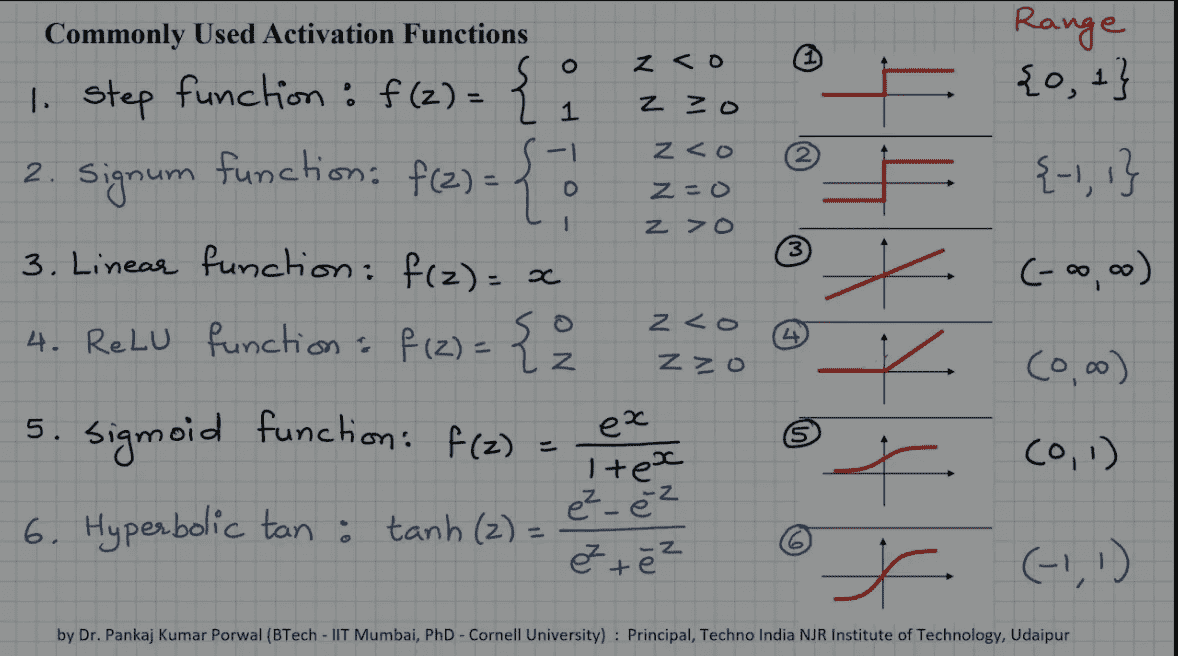 Commonly Used Activation Functions
Range
1. Step function : f(z) = { 0 z < 0
1 z ≥ 0
① {0, 1}
2. Signum function: f(z) = { -1 z < 0
0 z = 0
1 z > 0
② {-1, 1}
3. Linear function: f(z) = x
③ (-∞, ∞)
4. ReLU function : f(z) = { 0 z < 0
z z ≥ 0
④ (0, ∞)
5. Sigmoid function: f(z) = e^x / 1+e^x
⑤ (0, 1)
6. Hyperbolic tan : tanh(z) = e^z - e^-z / e^z + e^-z
⑥ (-1, 1)
by Dr. Pankaj Kumar Porwal (BTech - IIT Mumbai, PhD - Cornell University) : Principal, Techno India NJR Institute of Technology, Udaipur